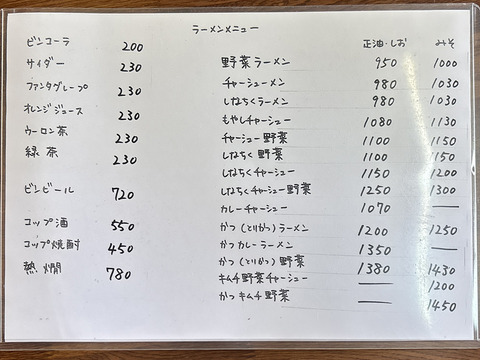 ラーメンメニュー
ビンコーラ 200
サイダー 230
ファンタグレープ 230
オレンジジュース 230
ウーロン茶 230
緑茶 230
ビンビール 720
コップ酒 550
コップ焼酎 450
熱燗 780
正油・しお みそ
野菜ラーメン 950 1000
チャーシューメン 980 1030
しなちくラーメン 980 1030
もやしチャーシュー 1080 1130
チャーシュー野菜 1100 1150
しなちく野菜 1100 1150
しなちくチャーシュー 1150 1200
しなちくチャーシュー野菜 1250 1300
カレーチャーシュー 1070 —
かつ(とりかつ)ラーメン 1200 1250
かつカレーラーメン 1350 —
かつ(とりかつ)野菜 1380 1430
キムチ野菜チャーシュー — 1200
かつキムチ野菜 — 1450